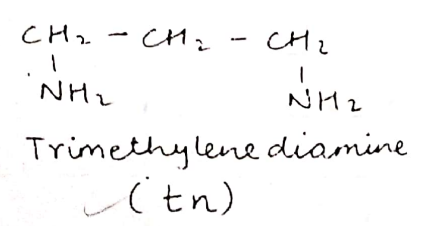 CH₂ - CH₂ - CH₂
NH₂ NH₂
Trimethylene diamine
(tn)